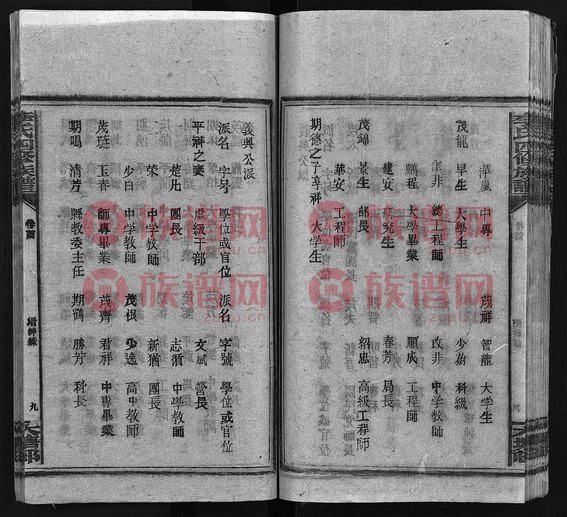 義與公派
派名 字号 學位或官位 派名 字號 學位或官位
平祥之妻 虞級干部 文斌 營長
楚凡 團長 志猶 中學教師
荣 中学教師 新猶 團長
少白 中学教師 茂根 少逸 高中教師
茂璉 玉春 師專畢業 茂齊 君祥 中專畢業
期鳴 清芳 縣教委主任 期鶴 勝芳 科長
卷首
縉紳錄
九
洋嵐 中專 茂祥 智龍 大学生
茂龍 早生 大學生 少尉 科級
潔非 總工程師 改非 中学教師
鵬程 大學畢業 順成 工程師
建女 研究生 春芳 局長
茂錦 景生 部長 紹忠 高級工程師
華安 工程師
期德之子享祥 大学生
族谱网
zupu.cn